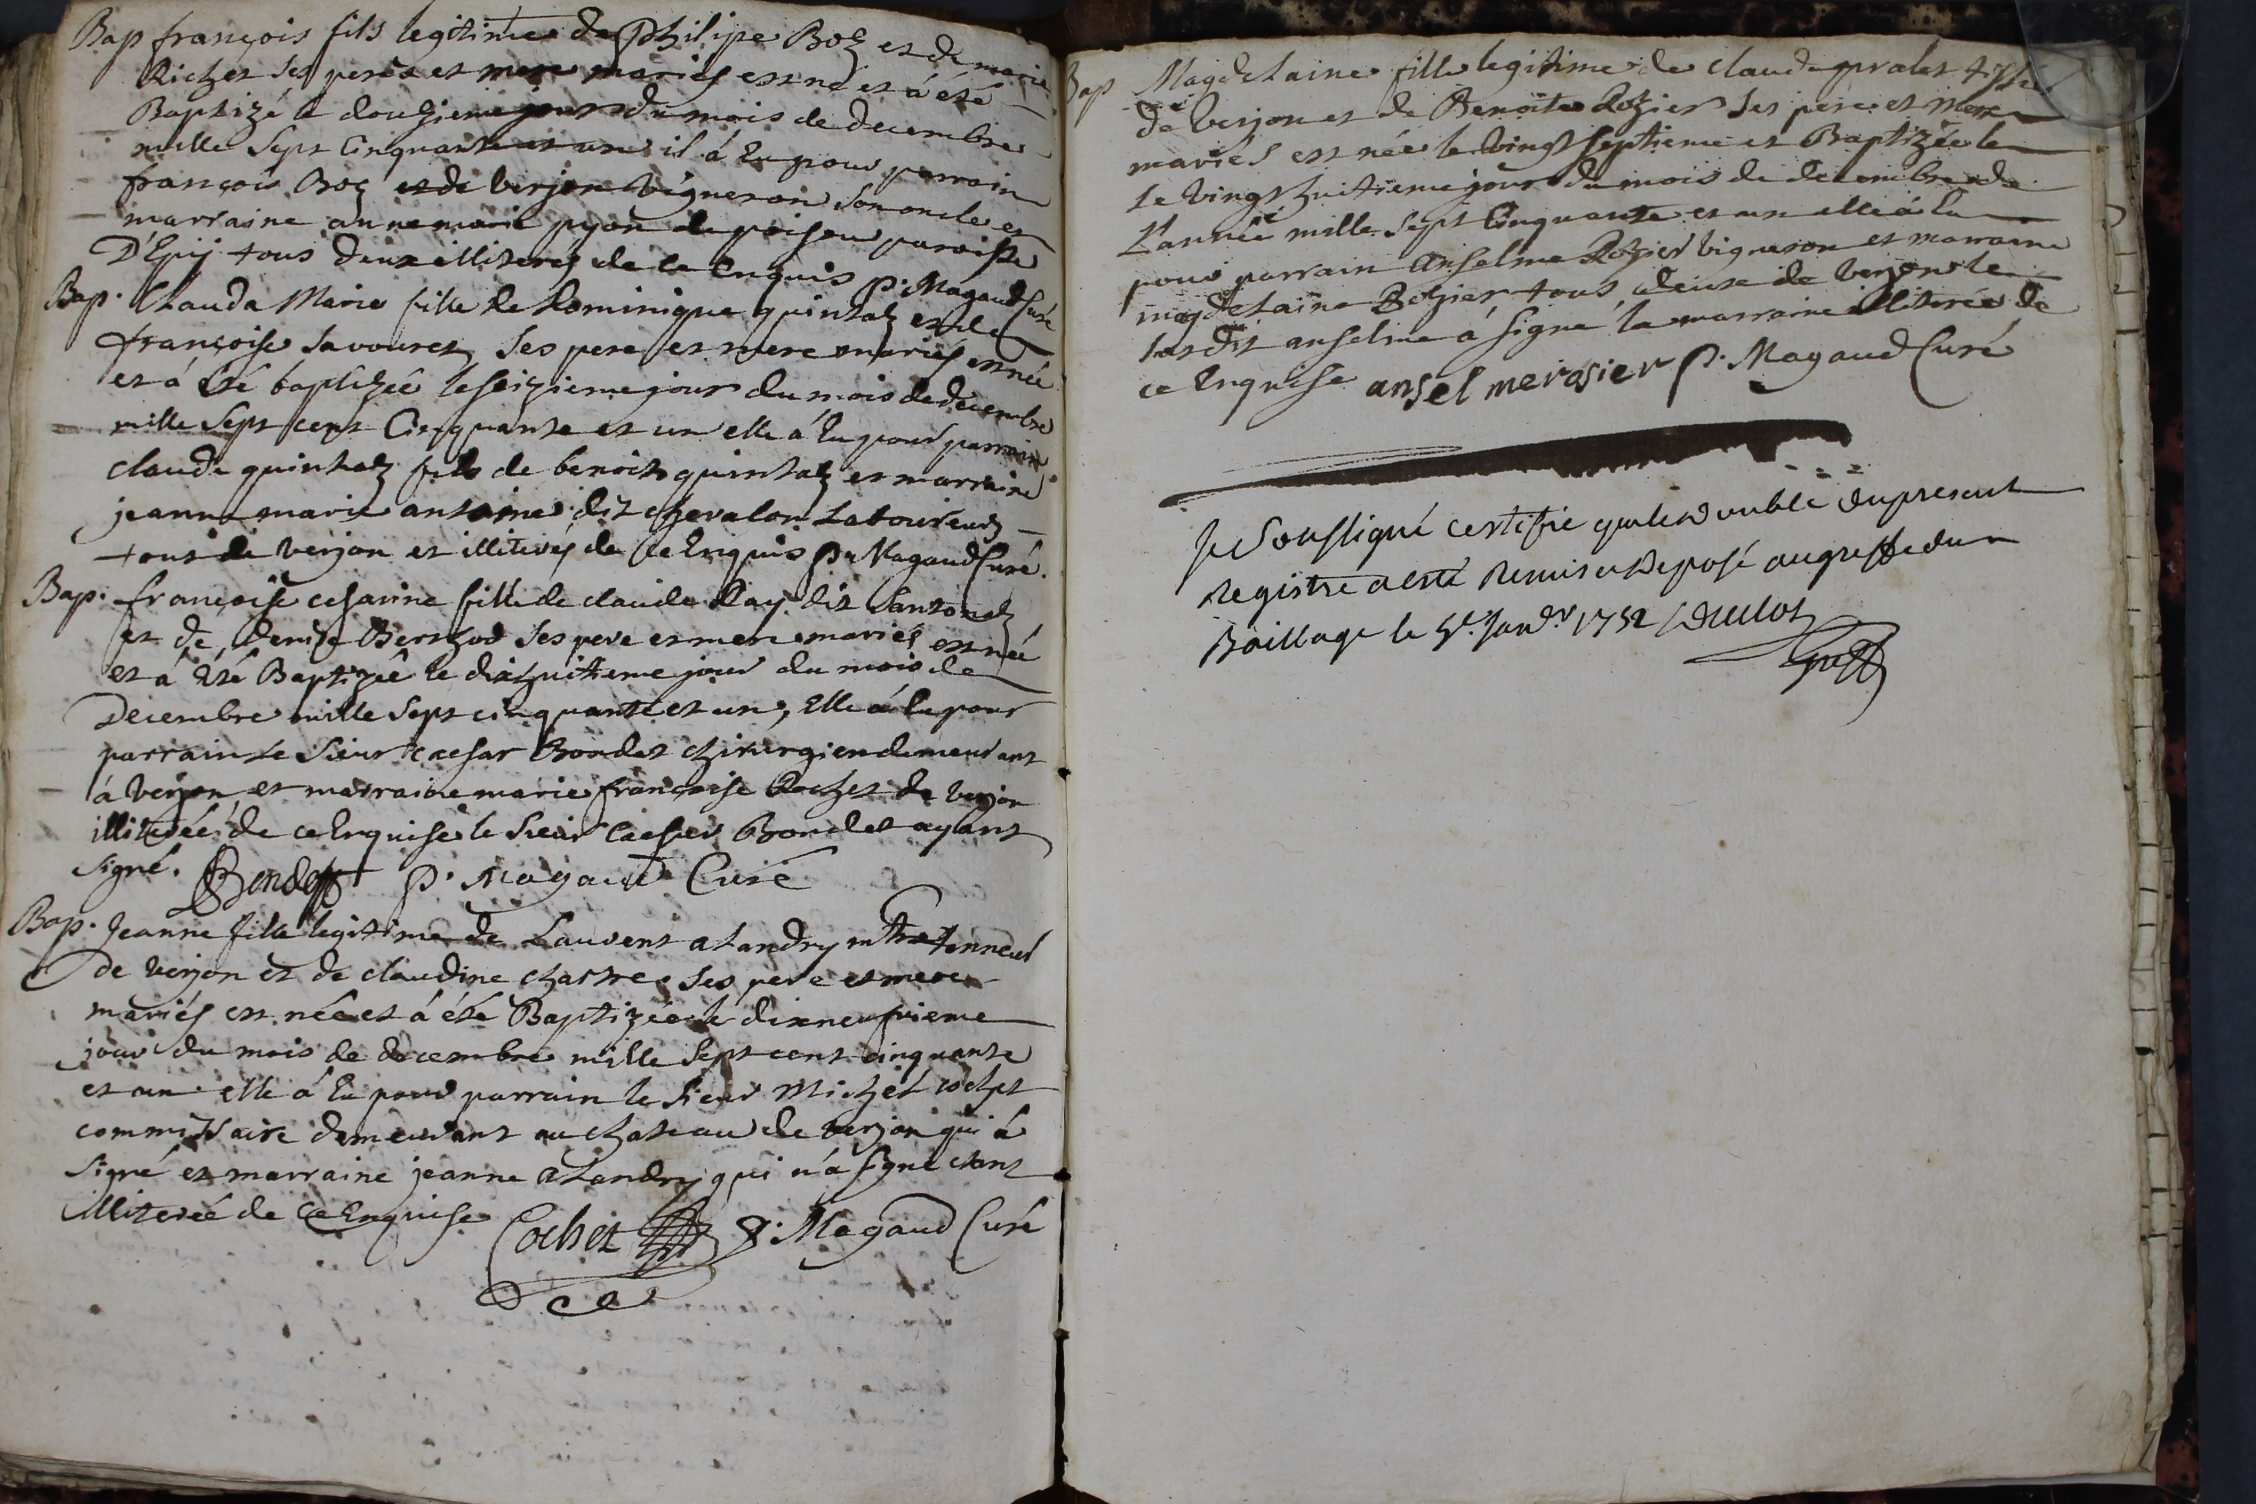 Bap françois fils legitime de Philipe Boz et de marie
Richet ses peres et mere mariés est né et á été
Baptizé le douzieme jour du mois de decembre
mille sept Cinquante et un il á Eu pour parrain
françois Boz et de verjon vigneron son oncle et
marraine anne marie pyon de poisou paroisse
D'Epij tous deux illiterés de ce Enquis P. Magaud Curé
Bap. Clauda Marie fille de dominique quinhatz et de
françoise savouret ses pere et mere mariés est née
et á été baptizeé le seizieme jour du mois de decembre
mille sept cent Cinquante et un elle á Eu pour parrain
claude quinhatz fils de benoit quinhatz et marraine
jeanne marie antoine dit chevalon
tous de verjon et illiterés de ce Enquis P. Magaud Curé.
Bap. françoise cesarine fille de claude Ray dit
et de denize Berthod ses pere et mere mariés est née
et á Eté Baptizeé le dixhuitieme jour du mois de
Decembre mille sept cinquante et un, Elle á Eu pour
parrain le sieur caesar Bondet chirurgien demeurant
á verjon et marraine marie françoise Rochet de verjon
illitereé de ce Enquise le sieur Caesar Bondet ayant
signé. Bondet P. Magaud Curé
Bap. Jeanne fille legitime de Laurent alandry mtre tonneur
de verjon et de claudine chastre ses pere et mere
mariés est née et á été Baptizeé le dixneufvieme
jour du mois de decembre mille sept cent cinquante
et un elle á Eu pour parrain le sieur Michel cochet
commissaire demeurant au chateau de verjon qui á
signé et marraine jeanne alandry qui n'á signé etant
illitereé de ce Enquise Cochet P. Magaud Curé
Bap Magdelaine fille legitime de claude pralet tissier
de verjon et de Benoite Rozier ses pere et mere
mariés est née le vingt septieme et Baptizée le
le vingt huitieme jour du mois de decembre de
L'année mille sept Cinquante et un elle á Eu
pour parrain anselme Rozier vigneron et marraine
magdelaine Rozier tous deux de verjon le
susdit anselme á signé la marraine illitereé de
ce Enquise ansel merosier P. Magaud Curé
Je Soussigné certifie que le double du present
Registre a esté Remis et Deposé au greffe du
Baillage le 5e. Janvr 1752
Greff